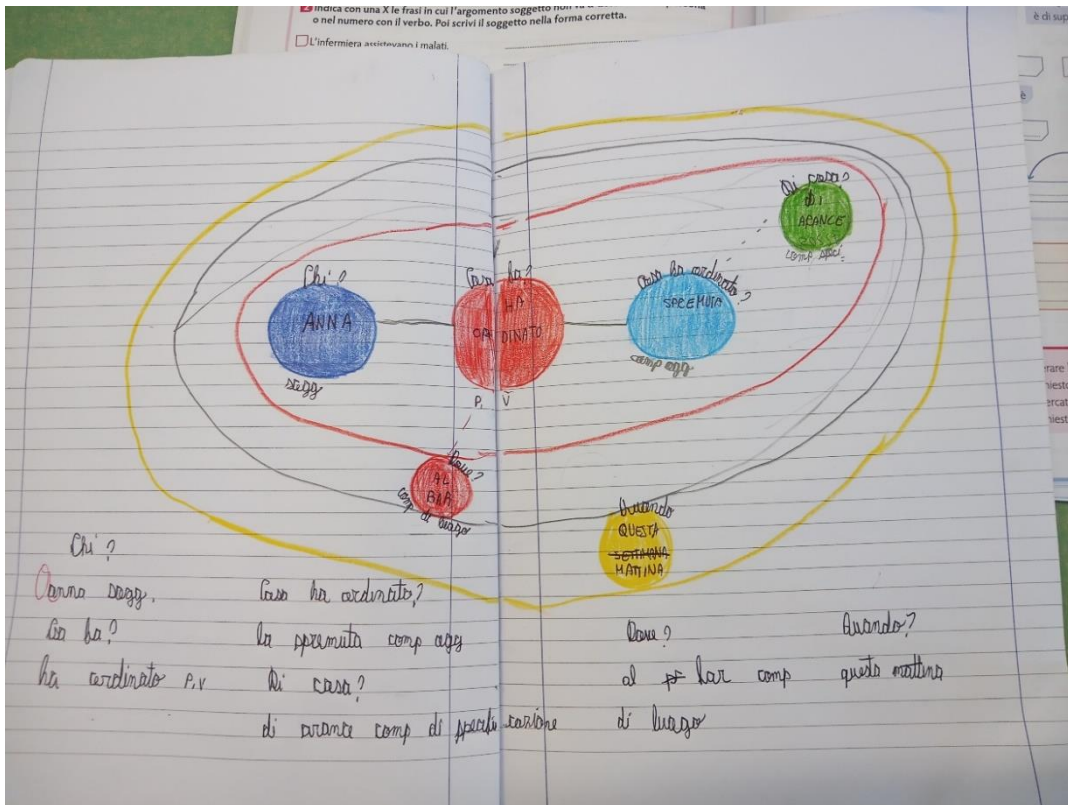 2 Indica con una X le frasi in cui l'argomento soggetto non
o nel numero con il verbo. Poi scrivi il soggetto nella forma corretta.
L'infermiera assistevano i malati.
è di sup
è
Di cosa?
di
ARANCE
comp speci.
Chi?
ANNA
sogg
Cosa ha?
HA
ORDINATO
P.V
Cosa ha ordinato?
SPREMUTA
comp ogg
Dove?
AL
BAR
comp di luogo
Quando
QUESTA
SETTIMANA
MATTINA
Chi?
anna sogg.
Cosa ha ordinato?
ha?
la spremuta comp ogg
ha ordinato P.V
Di cosa?
di arance comp di specificazione
Dove?
al bar comp
di luogo
Quando?
questa mattina